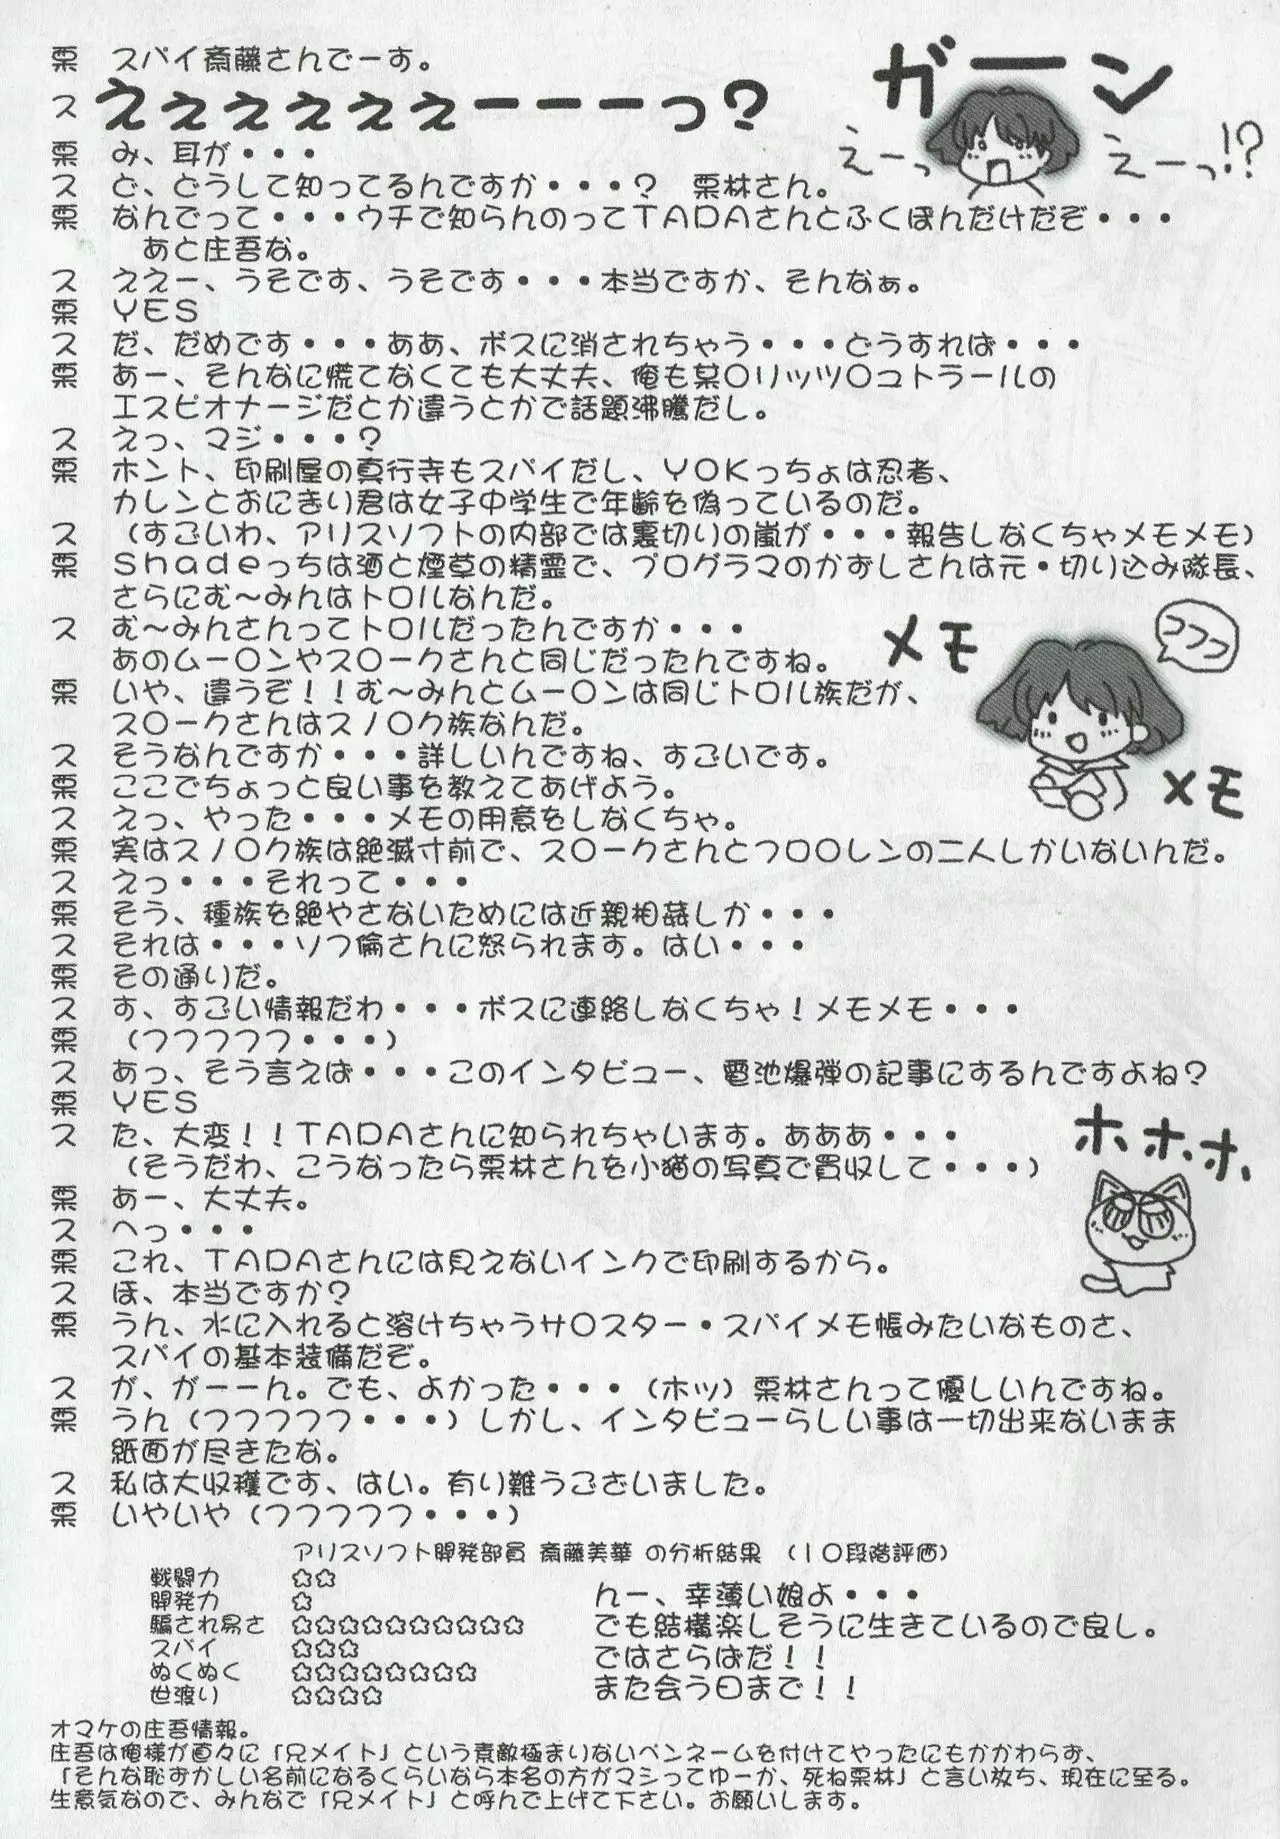 栗 スパイ斎藤さんでーす。
ス えぇぇぇぇぇーーーっ？
ガーン
えーっ
えーっ!?
栗 み、耳が・・・
ス ど、どうして知ってるんですか・・・？ 栗林さん。
栗 なんでって・・・ウチで知らんのってＴＡＤＡさんとふくぽんだけだぞ・・・
あと庄吾な。
ス ええー、うそです、うそです・・・本当ですか、そんなぁ。
栗 ＹＥＳ
ス だ、だめです・・・ああ、ボスに消されちゃう・・・どうすれば・・・
栗 あー、そんなに慌てなくても大丈夫、俺も某〇リッツ〇コトラールの
エスピオナージだとか違うとかで話題沸騰だし。
ス えっ、マジ・・・？
栗 ホント、印刷屋の真行寺もスパイだし、ＹＯＫっちょは忍者、
カレンとおにぎり君は女子中学生で年齢を偽っているのだ。
ス （すごいわ、アリスソフトの内部では裏切りの嵐が・・・報告しなくちゃメモメモ）
栗 Ｓｈａｄｅっちは酒と煙草の精霊で、プログラマのかずしさんは元・切り込み隊長、
さらにむ～みんはトロルなんだ。
ス む～みんさんってトロルだったんですか・・・
あのム－〇ンやス〇ークさんと同じだったんですね。
メモ
フフフ
栗 いや、違うぞ！！む～みんとム－〇ンは同じトロル族だが、
ス〇ークさんはスノ〇ク族なんだ。
ス そうなんですか・・・詳しいんですね、すごいです。
栗 ここでちょっと良い事を教えてあげよう。
メモ
ス えっ、やった・・・メモの用意をしなくちゃ。
栗 実はスノ〇ク族は絶滅寸前で、ス〇ークさんとフロ〇レンの二人しかいないんだ。
ス えっ・・・それって・・・
栗 そう、種族を絶やさないためには近親相姦しか・・・
ス それは・・・ソフ倫さんに怒られます。はい・・・
栗 その通りだ。
ス す、すごい情報だわ・・・ボスに連絡しなくちゃ！メモメモ・・・
栗 （フフフフフ・・・）
ス あっ、そう言えば・・・このインタビュー、電池爆弾の記事にするんですよね？
栗 ＹＥＳ
ス た、大変！！ＴＡＤＡさんに知られちゃいます。あああ・・・
（そうだわ、こうなったら栗林さんを小猫の写真で買収して・・・）
ホ、ホ、ホ、
栗 あー、大丈夫。
ス へっ・・・
栗 これ、ＴＡＤＡさんには見えないインクで印刷するから。
ス ほ、本当ですか？
栗 うん、水に入れると溶けちゃうサ〇スター・スパイメモ帳みたいなものさ、
スパイの基本装備だぞ。
ス が、がーーん。でも、よかった・・・（ホッ）栗林さんって優しいんですね。
栗 うん（フフフフフ・・・）しかし、インタビューらしい事は一切出来ないまま
紙面が尽きたな。
ス 私は大収穫です、はい。有り難うございました。
栗 いやいや（フフフフフ・・・）
アリスソフト開発部員 斎藤美華 の分析結果 （１０段階評価）
戦闘力 ☆☆
開発力 ☆
騙され易さ ☆☆☆☆☆☆☆☆☆☆
スパイ ☆☆☆
ぬくぬく ☆☆☆☆☆☆☆☆
世渡り ☆☆☆☆
んー、幸薄い娘よ・・・
でも結構楽しそうに生きているので良し。
ではさらばだ！！
また会う日まで！！
オマケの庄吾情報。
庄吾は俺様が直々に「兄メイト」という素敵極まりないペンネームを付けてやったにもかかわらず、
「そんな恥ずかしい名前になるくらいなら本名の方がマシってゆーか、死ね栗林」と言い放ち、現在に至る。
生意気なので、みんなで「兄メイト」と呼んで上げて下さい。お願いします。